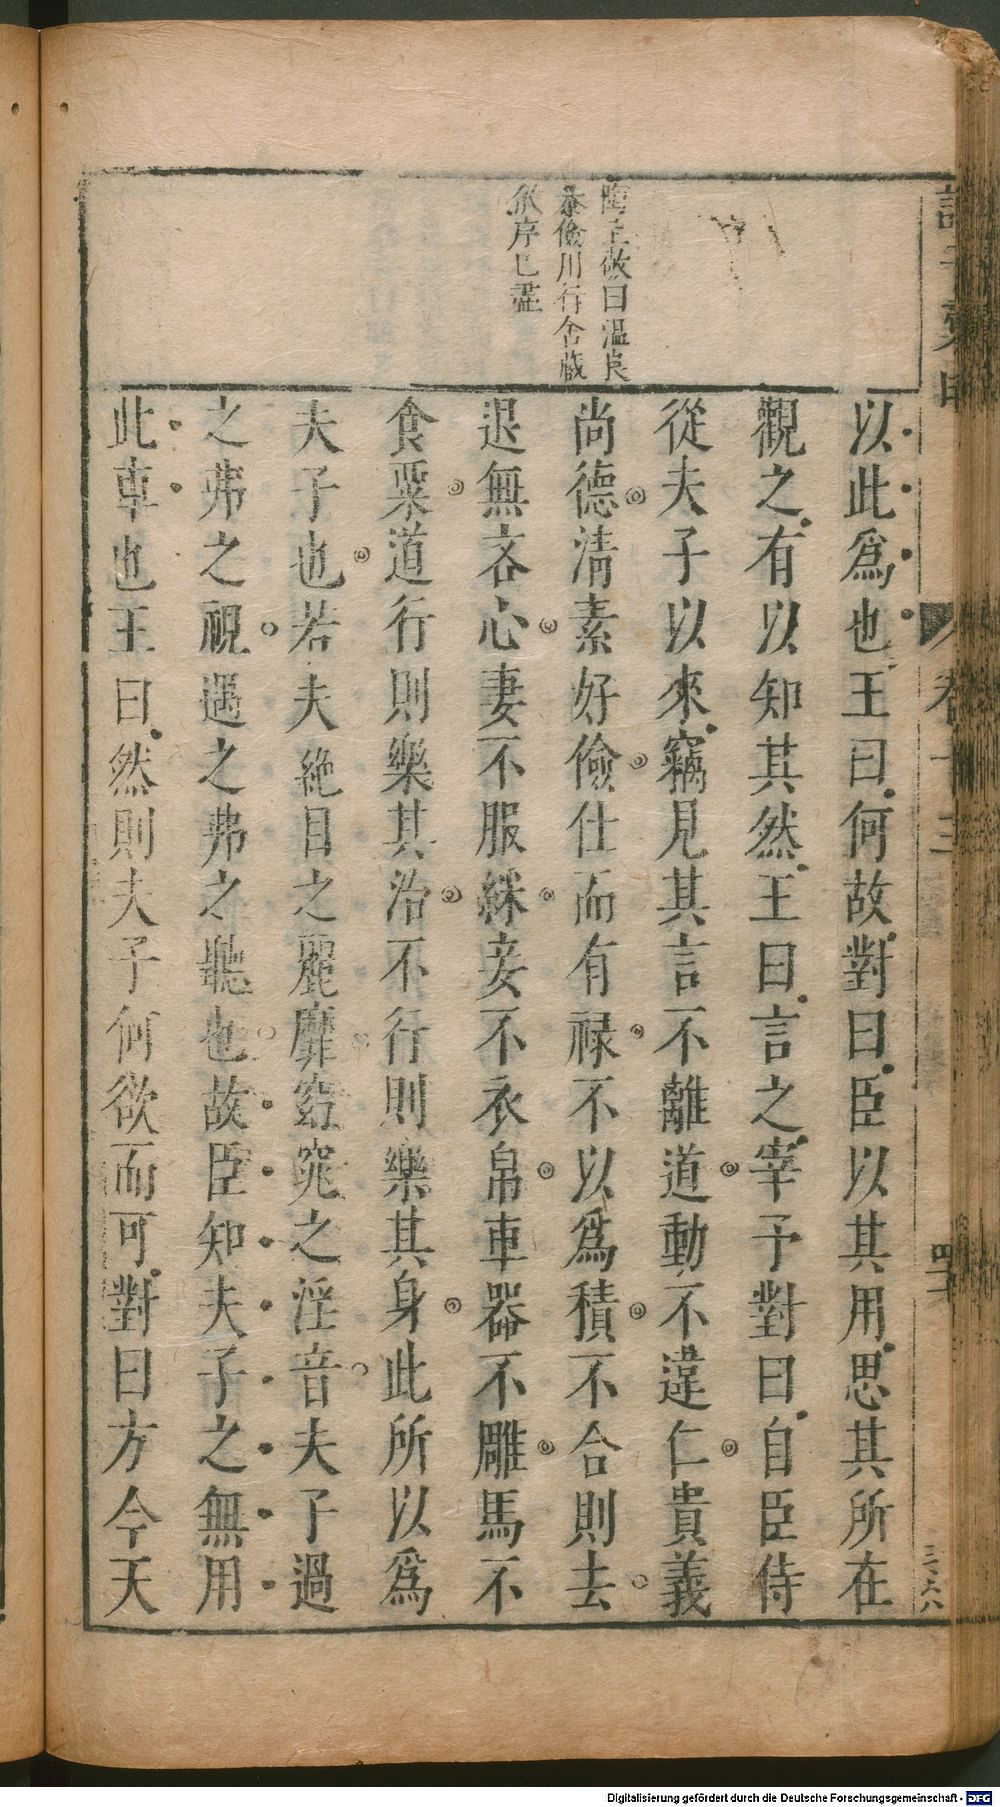 以此爲也王曰何故對曰臣以其用思其所在
觀之有以知其然王曰言之宰予對曰自臣侍
從夫子以來竊見其言不離道動不違仁貴義
尚德清素好儉仕而有禄不以爲積不合則去
退無吝心妻不服綵妾不衣帛車器不雕馬不
食粟道行則樂其治不行則樂其身此所以爲
夫子也若夫絶目之麗靡窈窕之淫音夫子過
之弗之視遇之弗之聽也故臣知夫子之無用
此車也王曰然則夫子何欲而可對曰方今天
曰温良
儉用行舍藏
卷十三
Digitalisierung gefördert durch die Deutsche Forschungsgemeinschaft - DFG